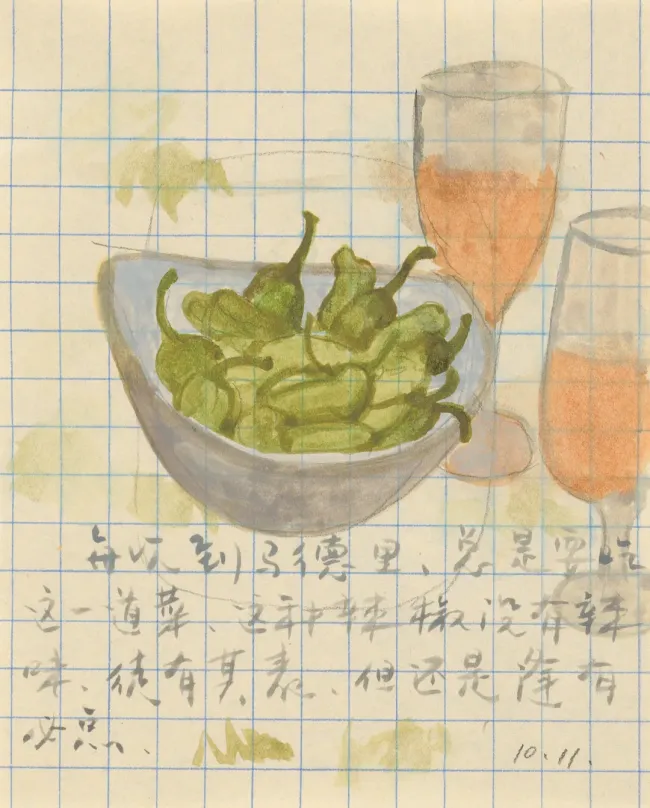 每次到马德里、总是要吃
这一道菜、这种辣椒没有辣
味、徒有其表、但还是逢有
必点、
10.11.